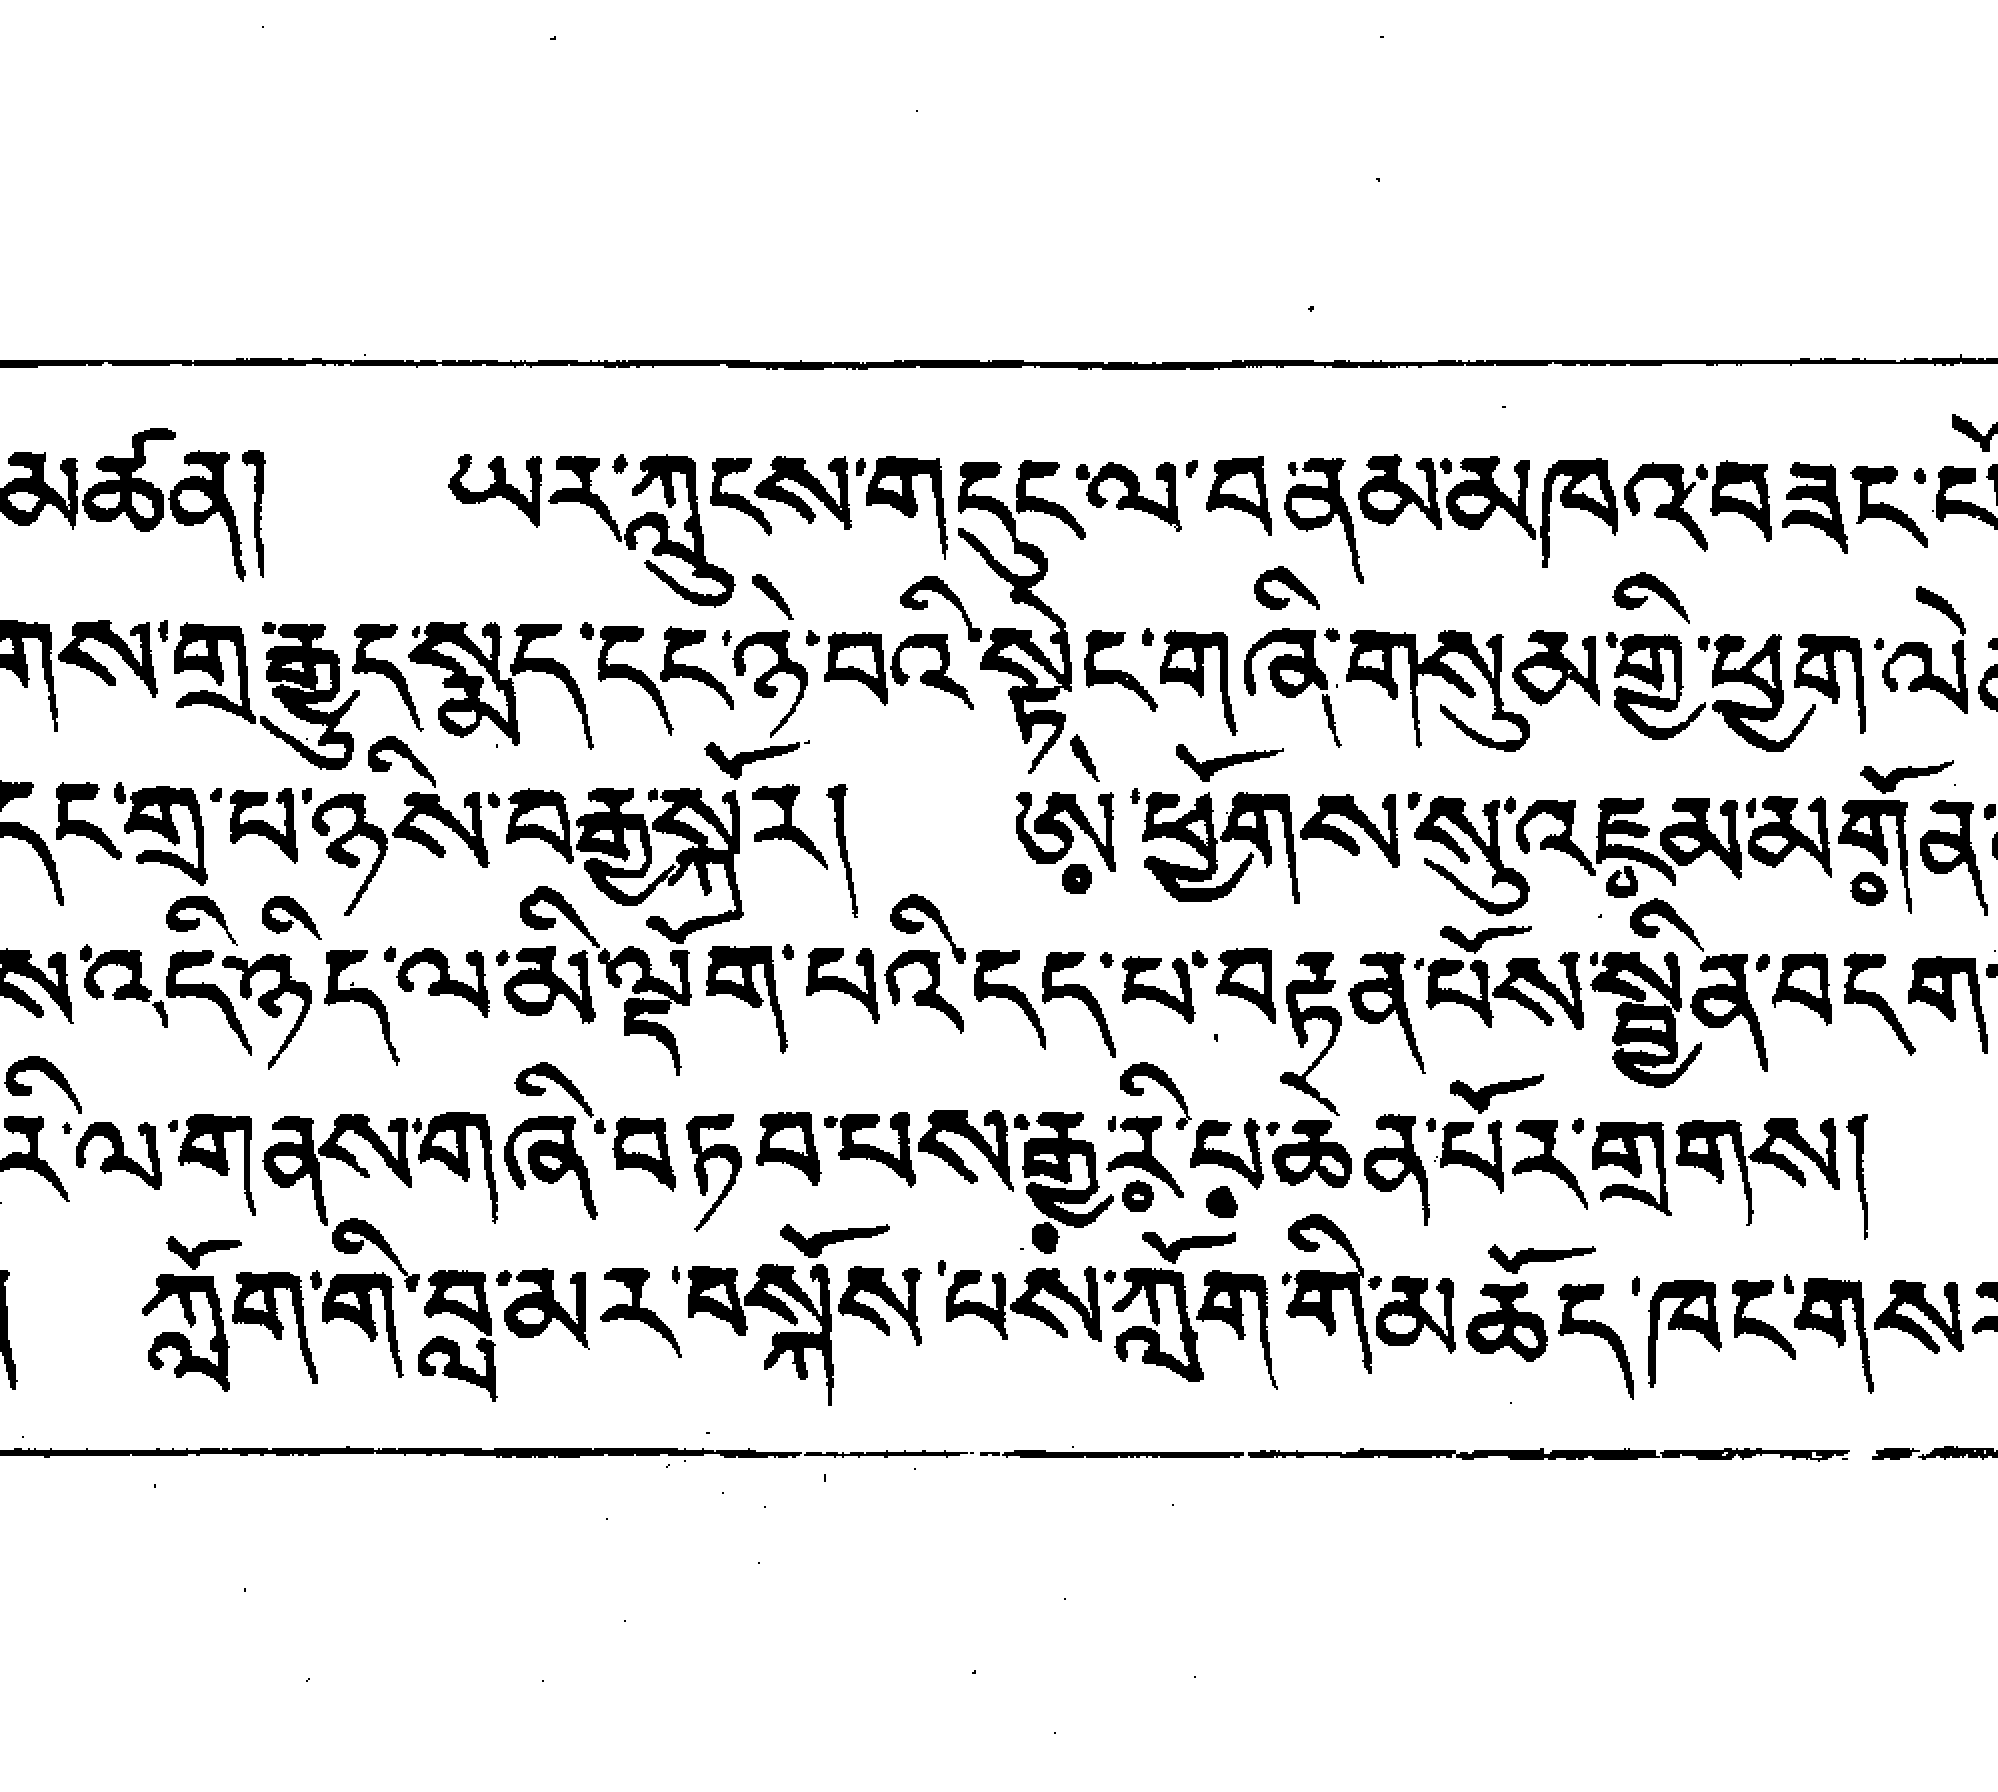 མཚན། ཡར་ཀླུངས་གདུང་ལ་བནམ་མཁའ་བཟང་པོ
གས་གྲ་རྒྱུད་སྨད་དང་ཉེ་བའི་སྟེང་གཞི་གསུམ་གྱི་ཕྱག་ལེ
དང་གྲ་པ་ཉིས་བརྒྱ་སྐོར། ཨེ་ཕྱོགས་སུ་འཇམ་མགོན
ས་འདི་ཉིད་ལ་མི་ལྡོག་པའི་དད་པ་བརྟན་པོས་སྦྱིན་བདག
རི་ལ་གནས་གཞི་བཏབ་པས་རྒྱ་རི་པ་ཆེན་པོར་གྲགས།
། ཀློག་གི་བླ་མར་བསྐོས་པས་ཀློག་གི་མཆོད་ཁང་གས